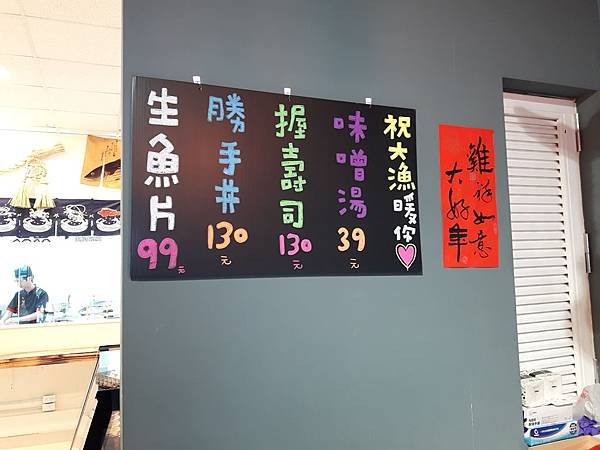 祝大漁暖你
味噌湯
39元
握壽司
130元
勝手丼
130元
生魚片
99元
雞祥如意
大好年